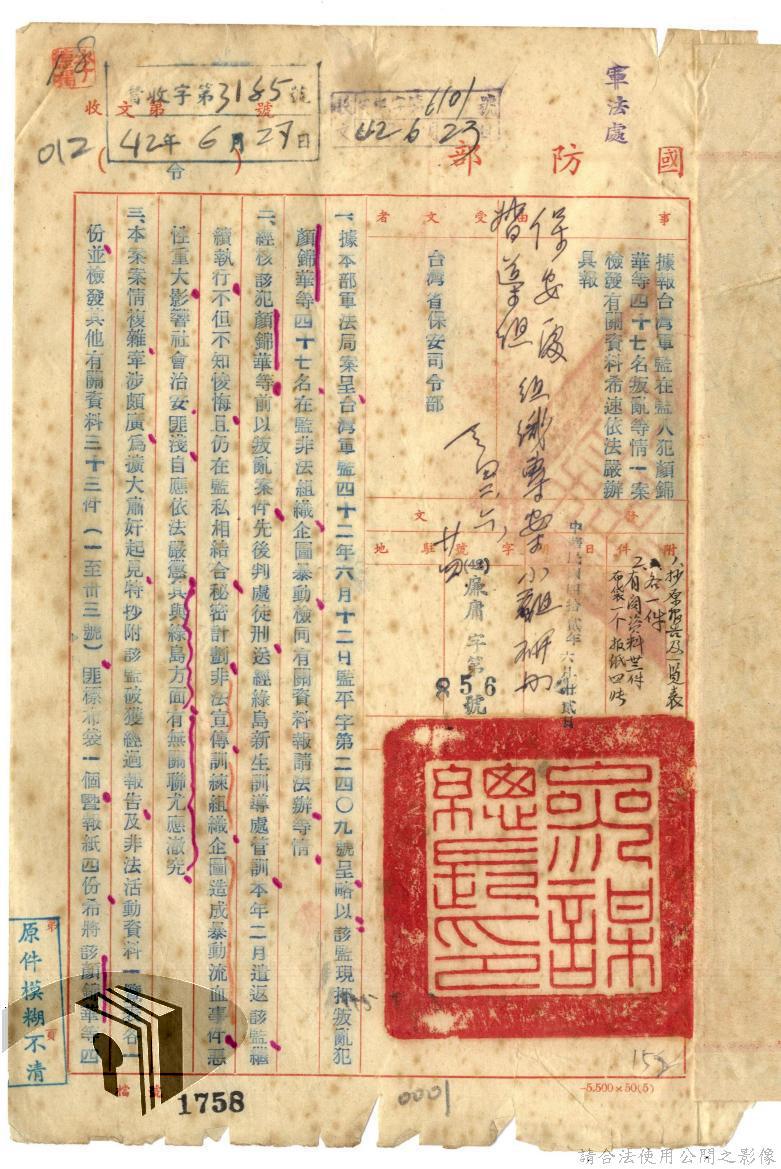 軍法處
國防部
令
收文第 號
警收字第3185號
42年6月27日
012
6101
42 6 23
事由
據報台灣軍監在監人犯顏錦
華等四十七名叛亂等情一案
檢發有關資料希速依法嚴辦
具報
受文者
台灣省保安司令部
保安處組織專案小組研辦
督導組
附件
1.抄原報告及一覽表
各一件
2.有關資料卅三件
布袋一个報紙四張
發文
日期 字號 駐地
中華民國四拾貳年六月廿貳日
(42)廉庸字第
856號
參謀總長之印
一、據本部軍法局案呈台灣軍監四十二年六月十二日監平字第二四〇九號呈略以該監現押叛亂犯
顏錦華等四十七名在監非法組織企圖暴動檢同有關資料報請法辦等情
二、經核該犯顏錦華等前以叛亂案件先後判處徒刑送經綠島新生訓導處管訓本年二月遣返該監繼
續執行不但不知悛悔且仍在監私相結合秘密計劃非法宣傳訓練組織企圖造成暴動流血事件惡
性重大影響社會治安匪淺自應依法嚴懲其與綠島方面有無關聯尤應澈究
三、本案案情複雜牽涉頗廣為擴大肅奸起見特抄附該監破獲經過報告及非法活動資料一覽表各一
份並檢發其他有關資料三十三件(一至卅三號)匪標布袋一個暨報紙四份希將該顏錦華等四
原件模糊不清
第 頁
檔 號
1758
0001
159
-5,500×50(5)
請合法使用公開之影像